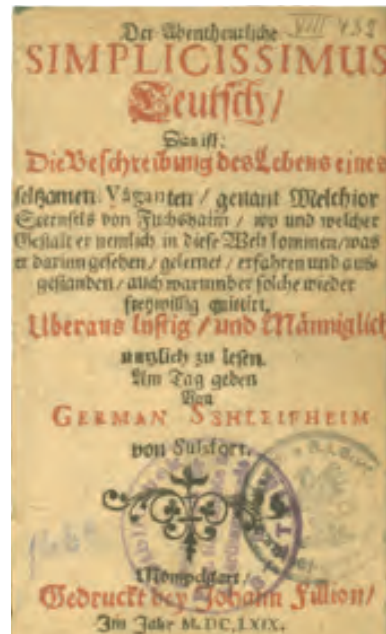 Der Abentheurliche
VIII 432
SIMPLICISSIMUS
Teutsch/
Das ist:
Die Beschreibung des Lebens eines
seltzamen Vaganten / genant Melchior
Sternfels von Fuchshaim / wo und welcher
Gestalt er nemlich in diese Welt kommen / was
er darinn gesehen / gelernet / erfahren und auß-
gestanden / auch warumb er solche wieder
freywillig quittirt.
Uberaus lustig / und Männiglich
nutzlich zu lesen.
Am Tag geben
Von
GERMAN SCHLEIFHEIM
von Sulsfort.
Mompelgart /
Gedruckt bey Johann Fillion /
Im Jahr M.DC.LXIX.